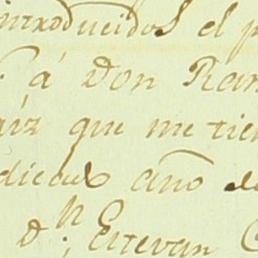 introducidos el p
á Don Ram
aiz que me tien
dicad año de
dn Estevan C